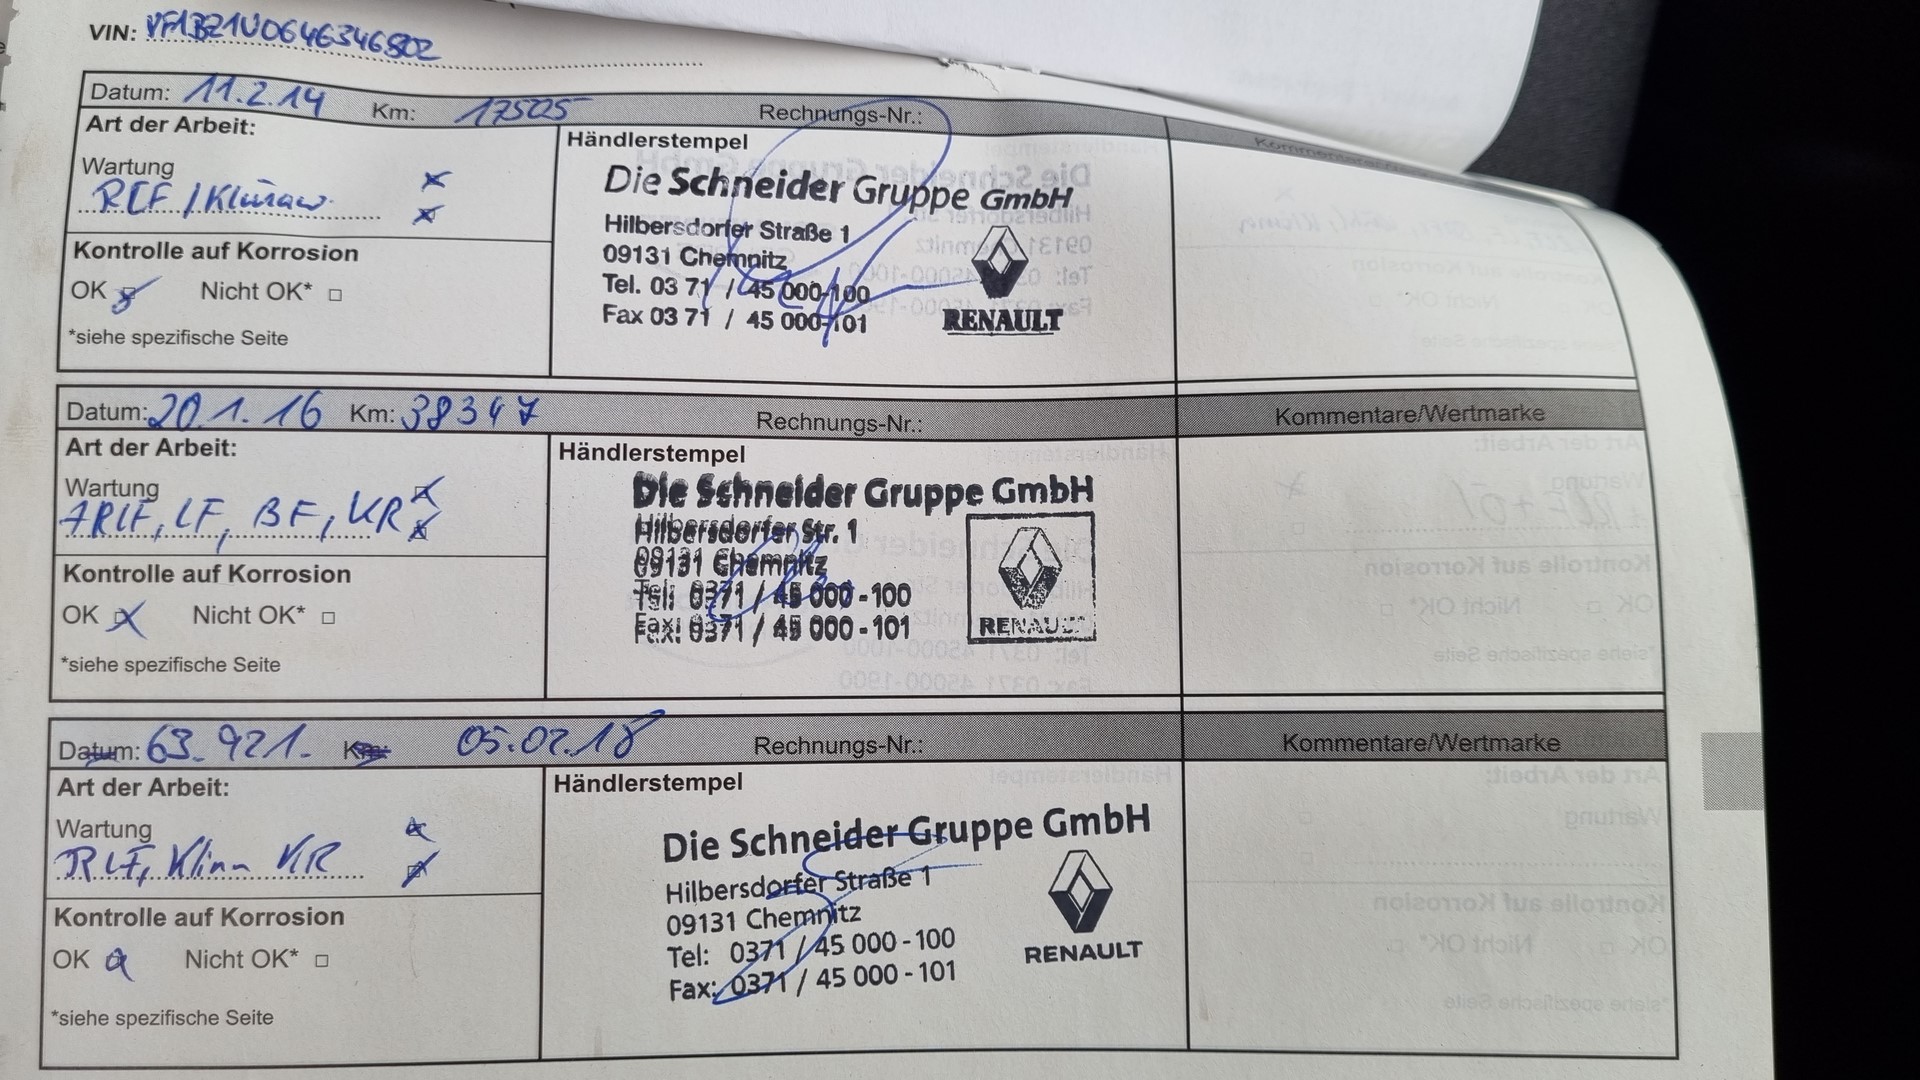 VIN: VF1BZ1U0646346802
Datum: 11.2.14 Km: 17505 Rechnungs-Nr.:
Art der Arbeit:
Wartung
RLF / Klimaw.
Kontrolle auf Korrosion
OK Nicht OK*
*siehe spezifische Seite
Händlerstempel
Die Schneider Gruppe GmbH
Hilbersdorfer Straße 1
09131 Chemnitz
Tel. 03 71 / 45 000-100
Fax 03 71 / 45 000-101
RENAULT
Datum: 20.1.16 Km: 38347 Rechnungs-Nr.: Kommentare/Wertmarke
Art der Arbeit:
Wartung
ARLF, LF, BF, KR
Kontrolle auf Korrosion
OK Nicht OK*
*siehe spezifische Seite
Händlerstempel
Die Schneider Gruppe GmbH
Hilbersdorfer Str. 1
09131 Chemnitz
Tel: 0371 / 45 000 - 100
Fax: 0371 / 45 000 - 101
RENAULT
Datum: 63.921. Km: 05.02.18 Rechnungs-Nr.: Kommentare/Wertmarke
Art der Arbeit:
Wartung
RLF, Klima KR
Kontrolle auf Korrosion
OK Nicht OK*
*siehe spezifische Seite
Händlerstempel
Die Schneider Gruppe GmbH
Hilbersdorfer Straße 1
09131 Chemnitz
Tel: 0371 / 45 000 - 100
Fax: 0371 / 45 000 - 101
RENAULT